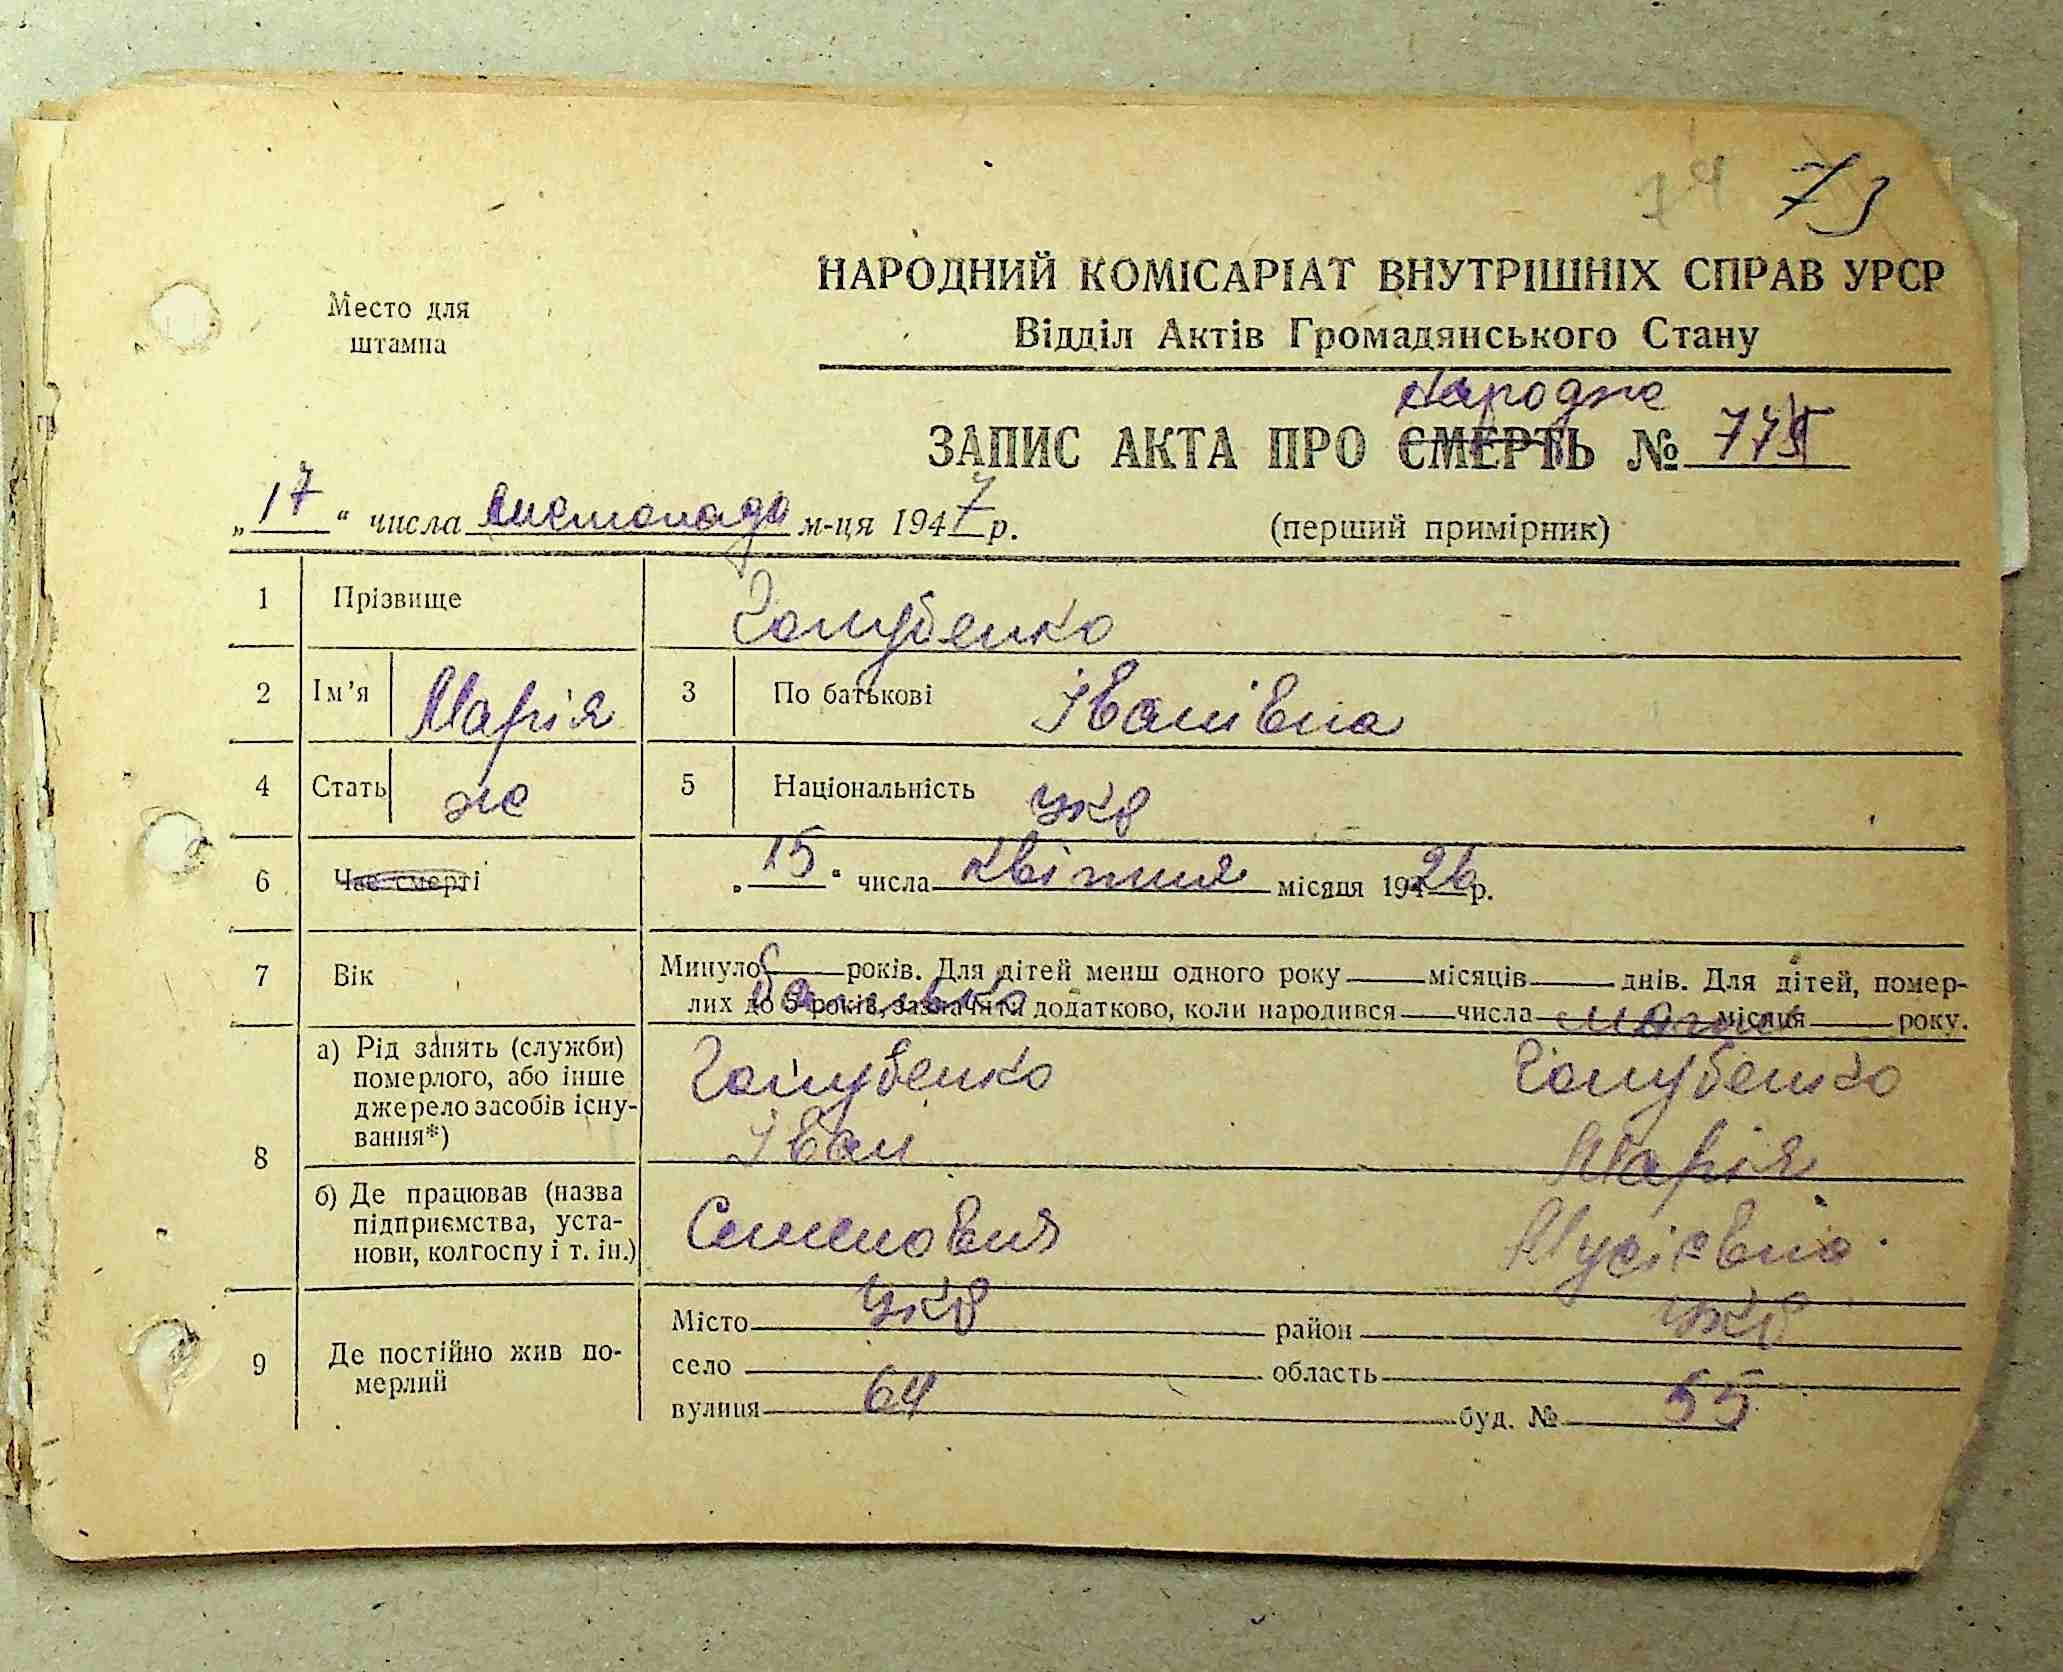 74 73
Место для
штампа
НАРОДНИЙ КОМІСАРІАТ ВНУТРІШНІХ СПРАВ УРСР
Відділ Актів Громадянського Стану
народже
ЗАПИС АКТА ПРО СМЕРТЬ №
„17“ числа листопада м-ця 1947 р.
(перший примірник)
1 Прізвище Голубенко
2 Ім'я Марія 3 По батькові Іванівна
4 Стать ж 5 Національність укр
6 Час смерті „15“ числа квітня місяця 1926 р.
7 Вік Минуло років. Для дітей менш одного року місяців днів. Для дітей, помер-
лих до 5 років, зазначити додатково, коли народився числа місяця року.
батько мати
8 а) Рід занять (служби)
померлого, або інше
джерело засобів існу-
вання*)
Голубенко Голубенко
Іван Марія
б) Де працював (назва
підприємства, уста-
нови, колгоспу і т. ін.)
Семенович Мусієвна.
укр укр
9 Де постійно жив по-
мерлий
Місто район
село область
вулиця 64 буд. № 55